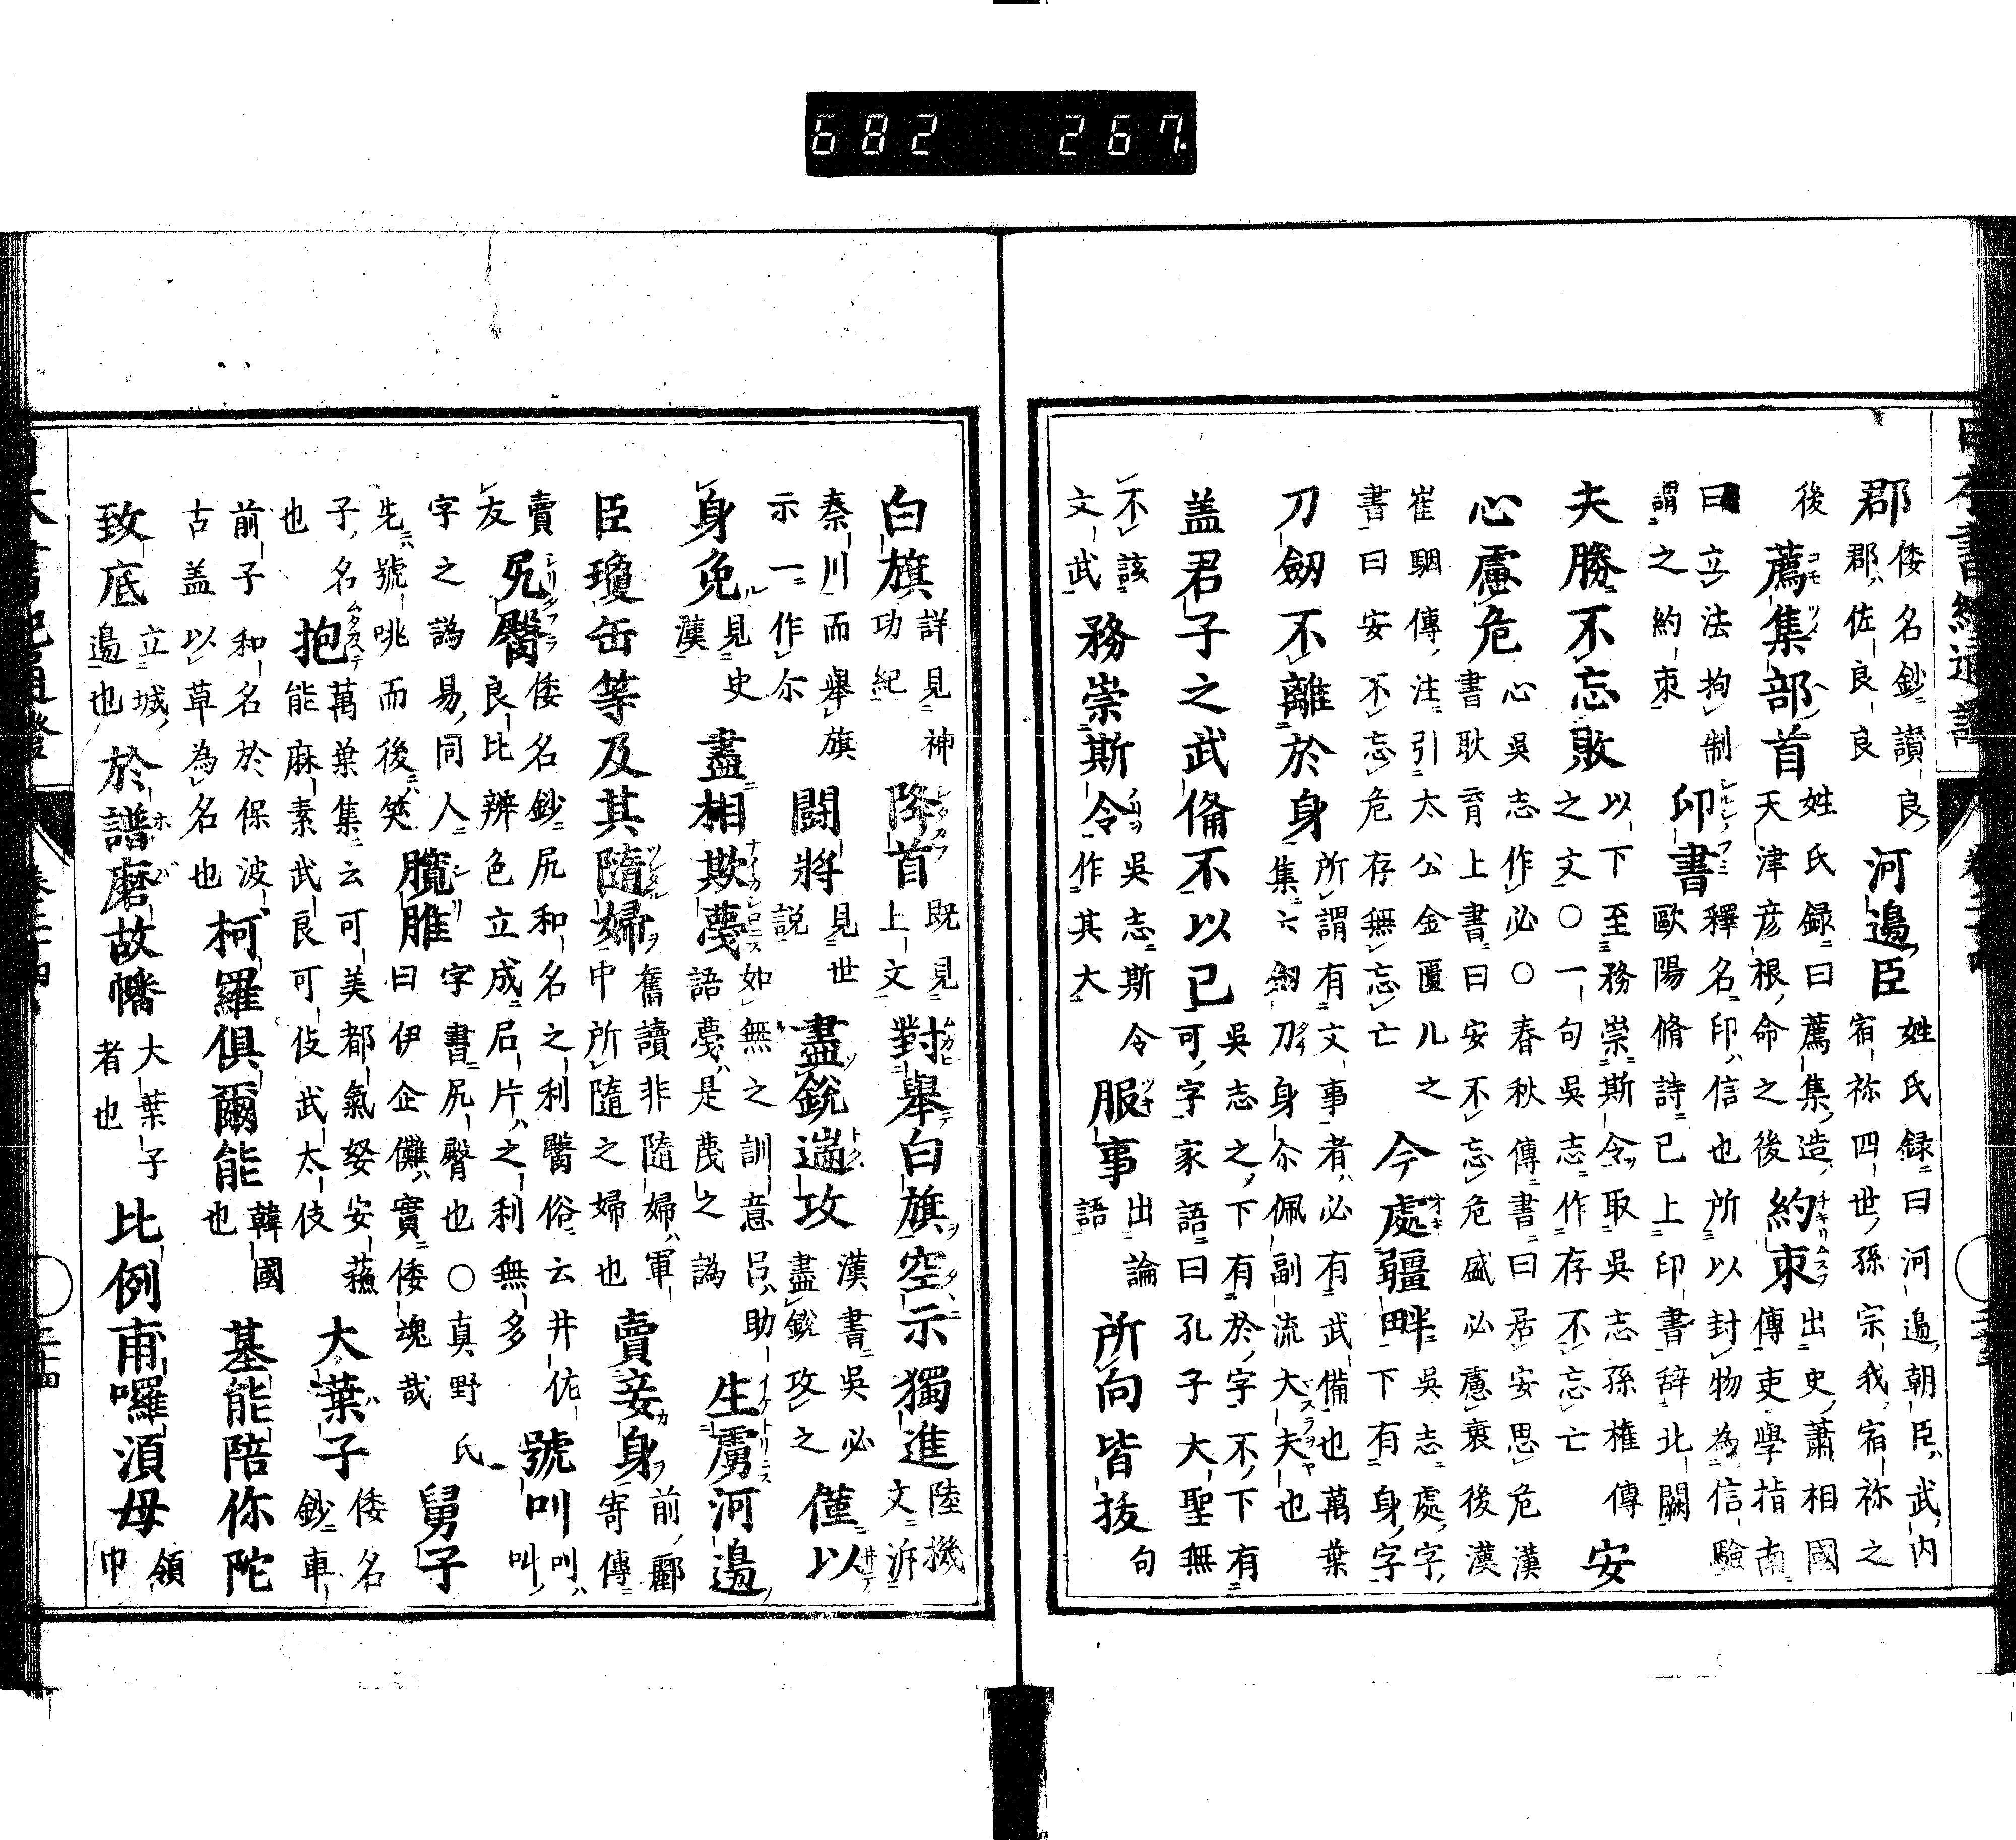 682 267
郡 倭名鈔讃良郡佐良良 河邉臣 姓氏録曰河邉朝臣武内宿祢四世孫宗我宿祢之
後 薦集部首 姓氏録曰薦集造天津彦根命之後 約束 出史蕭相國傳吏學指南
曰立法拘制謂之約束 印書 釋名印信也所以封物為信驗歐陽脩詩已上印書辞北闕
夫勝不忘敗 以下至務崇斯令取吳志孫權傳之文〇一句吳志作存不忘亡 安
心慮危 心吳志作必〇春秋傳書曰居安思危漢書耿育上書曰安不忘危盛必慮衰後漢
崔駰傳注引太公金匱儿之書曰安不忘危存無忘亡 今處疆畔 吳志處字下有身字
刀劒不離於身 所謂有文事者必有武備也萬葉集六劒刀身尒佩副流大夫也
盖君子之武備不以已 吳志之下有於字不下有可字家語曰孔子大聖無
不該文武 務崇斯令 吳志斯令作其大 服事 出論語 所向皆抜 句
白旗 詳見神功紀 降首 既見上文 對舉白旗空示獨進 陸機文泝
秦川而舉旗示一作尒 闘將 見世説 盡銳遄攻 漢書吳必盡銳攻之 僅以
身免 見史漢 盡相欺蔑 如無之訓意㠯助語蔑是蔑之譌 生虜河邉
臣瓊缶等及其隨婦 奮讀非隨婦軍中所隨之婦也 賣妾身 前酈寄傳
賣友 尻臋 倭名鈔尻和名之利臋俗云井佐良比辨色立成㞐片之利無多 號叫 叫叫
字之譌易同人先號咷而後笑 臗脽 字書尻臋也〇真野氏曰伊企儺實倭魂哉 舅子
子名也 抱 萬葉集云可美都氣努安蘓能麻素武良可伎武太伎 大葉子 倭名鈔車
前子和名於保波古盖以草為名也 柯羅俱爾能 韓國也 基能陪你陀
致底 立城邉也 於譜磨故幡 大葉子者也 比例甫囉湏母 領巾